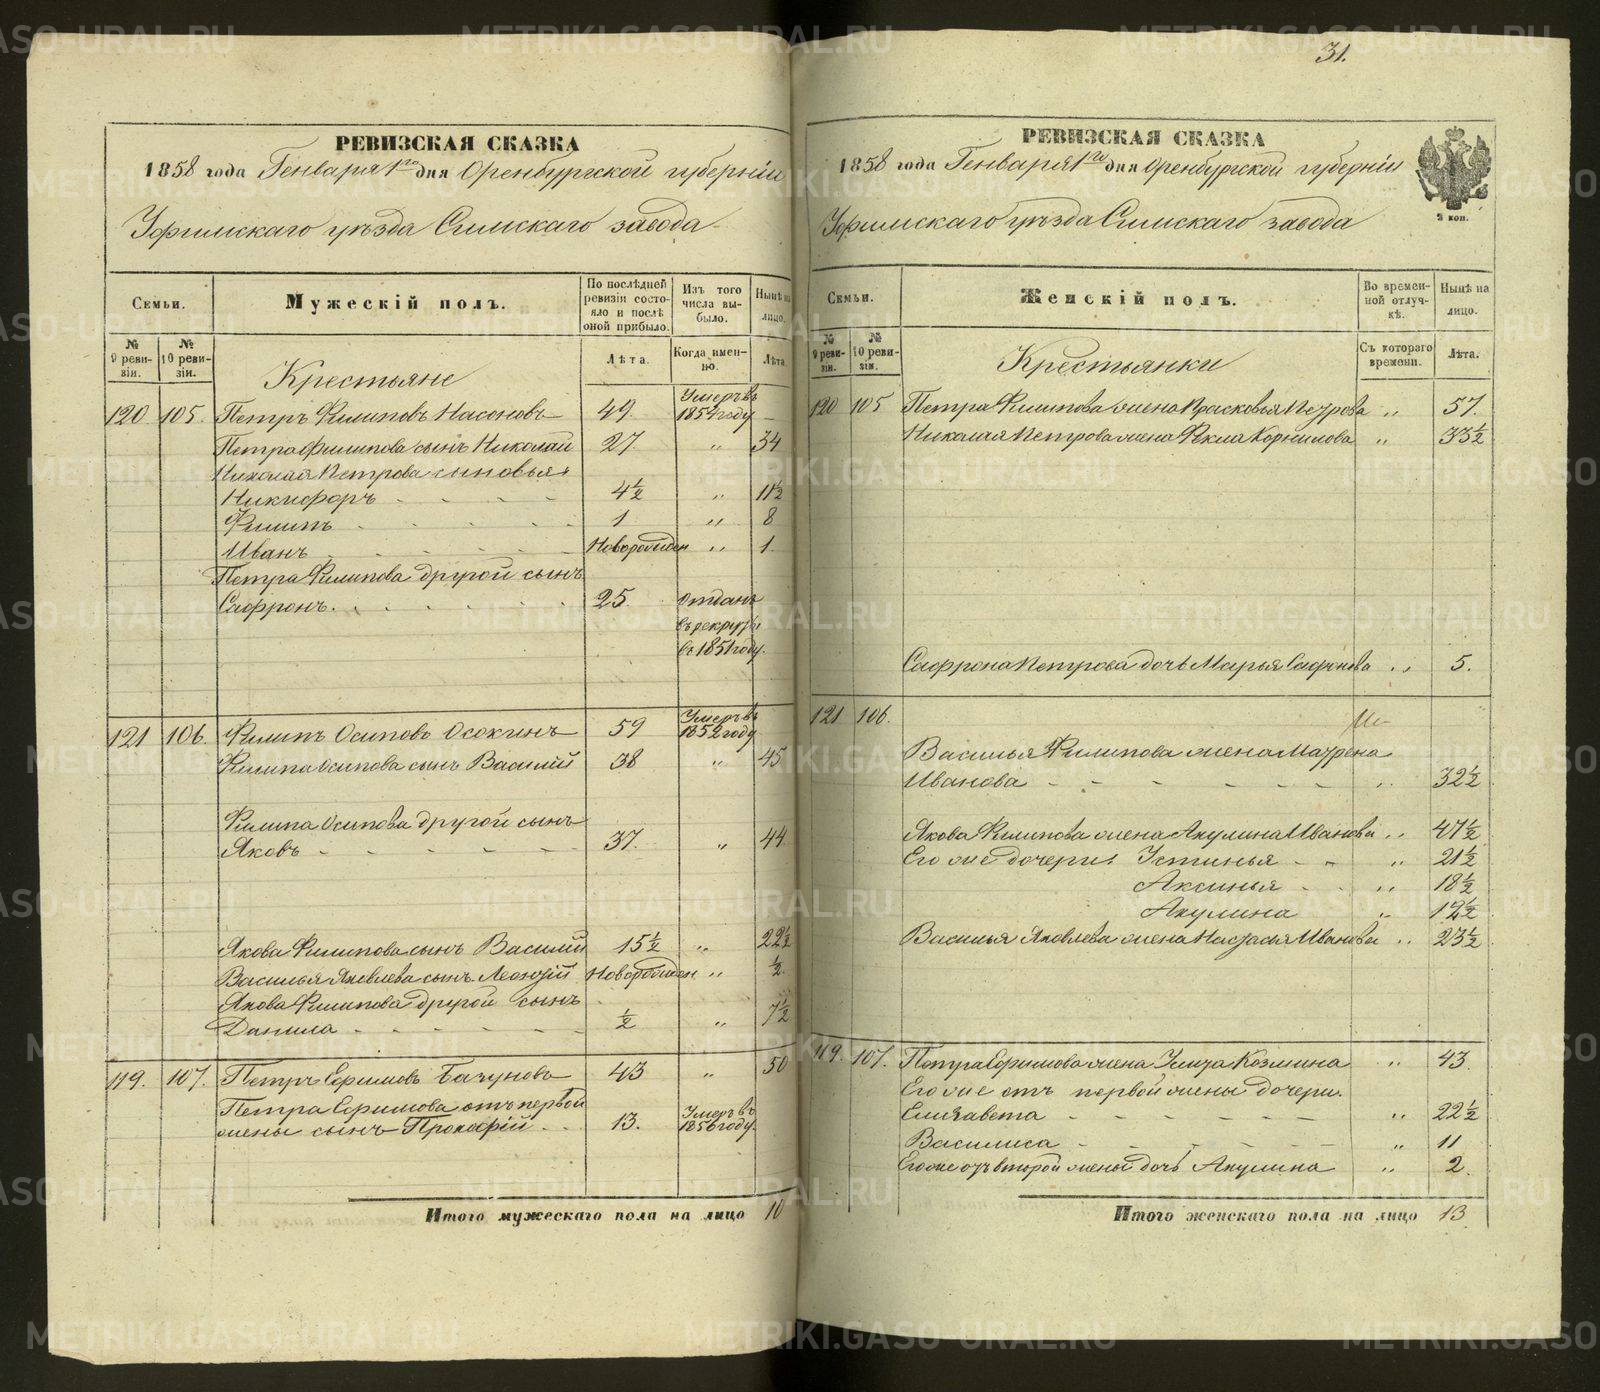 31.
РЕВИЗСКАЯ СКАЗКА
1858 года Генваря 1го дня Оренбургской губерніи
Уфимскаго уѣзда Симскаго завода
Семьи.
Мужескій полъ.
По послѣдней ревизіи состояло и послѣ оной прибыло.
Изъ того числа выбыло.
Нынѣ на лицо.
№ 9 ревизіи.
№ 10 ревизіи.
Крестьяне
Лѣта.
Когда именно.
Лѣта
120 105. Петръ Филиповъ Насоновъ 49. Умеръ въ 1854 году —
Петра Филипова сынъ Николай 27. " 34
Николая Петрова сыновья
Никифоръ 4½ " 11½
Филипъ 1 " 8
Иванъ Новорожден " 1.
Петра Филипова другой сынъ
Сафронъ. 25. Отданъ
въ рекруты
въ 1851 году.
121 106. Филипъ Осиповъ Осокинъ 59 Умеръ въ 1852 году
Филипа Осипова сынъ Василий 38 " 45
Филипа Осипова другой сынъ
Яковъ 37. " 44
Якова Филипова сынъ Василий 15½ " 22½
Василья Яковлева сынъ Леонтій Новорожден " ½.
Якова Филипова другой сынъ
Данила ½ " 7½
119. 107. Петръ Ефимовъ Бачуновъ 43 " 50
Петра Ефимова отъ первой
жены сынъ Прокофій 13. Умеръ въ 1856 году.
Итого мужескаго пола на лицо 10
РЕВИЗСКАЯ СКАЗКА
1858 года Генваря 1го дня Оренбургской губерніи
2 коп.
Уфимскаго уѣзда Симскаго завода
Семьи.
Женскій полъ.
Во временной отлучкѣ.
Нынѣ на лицо.
№ 9 ревизіи.
№ 10 ревизіи.
Крестьянки
Съ котораго времени.
Лѣта.
120 105 Петра Филипова жена Прасковья Петрова " 57.
Николая Петрова жена Фекла Корнилова " 33½
Сафрона Петрова дочь Марья Сафронова " 5.
121 106.
Василья Филипова жена Маурена
Иванова " 32½
Якова Филипова жена Акулина Иванова " 47½
Его же дочери: Устинья " 21½
Аксинья " 18½
Акулина " 12½
Василья Яковлева жена Настасья Иванова " 23½
119. 107. Петра Ефимова жена Улита Козмина " 43.
Его же отъ первой жены дочери.
Елизавета " 22½
Василиса " 11
Его же отъ второй жены дочь Акулина " 2.
Итого женскаго пола на лицо 13
METRIKI.GASO-URAL.RU